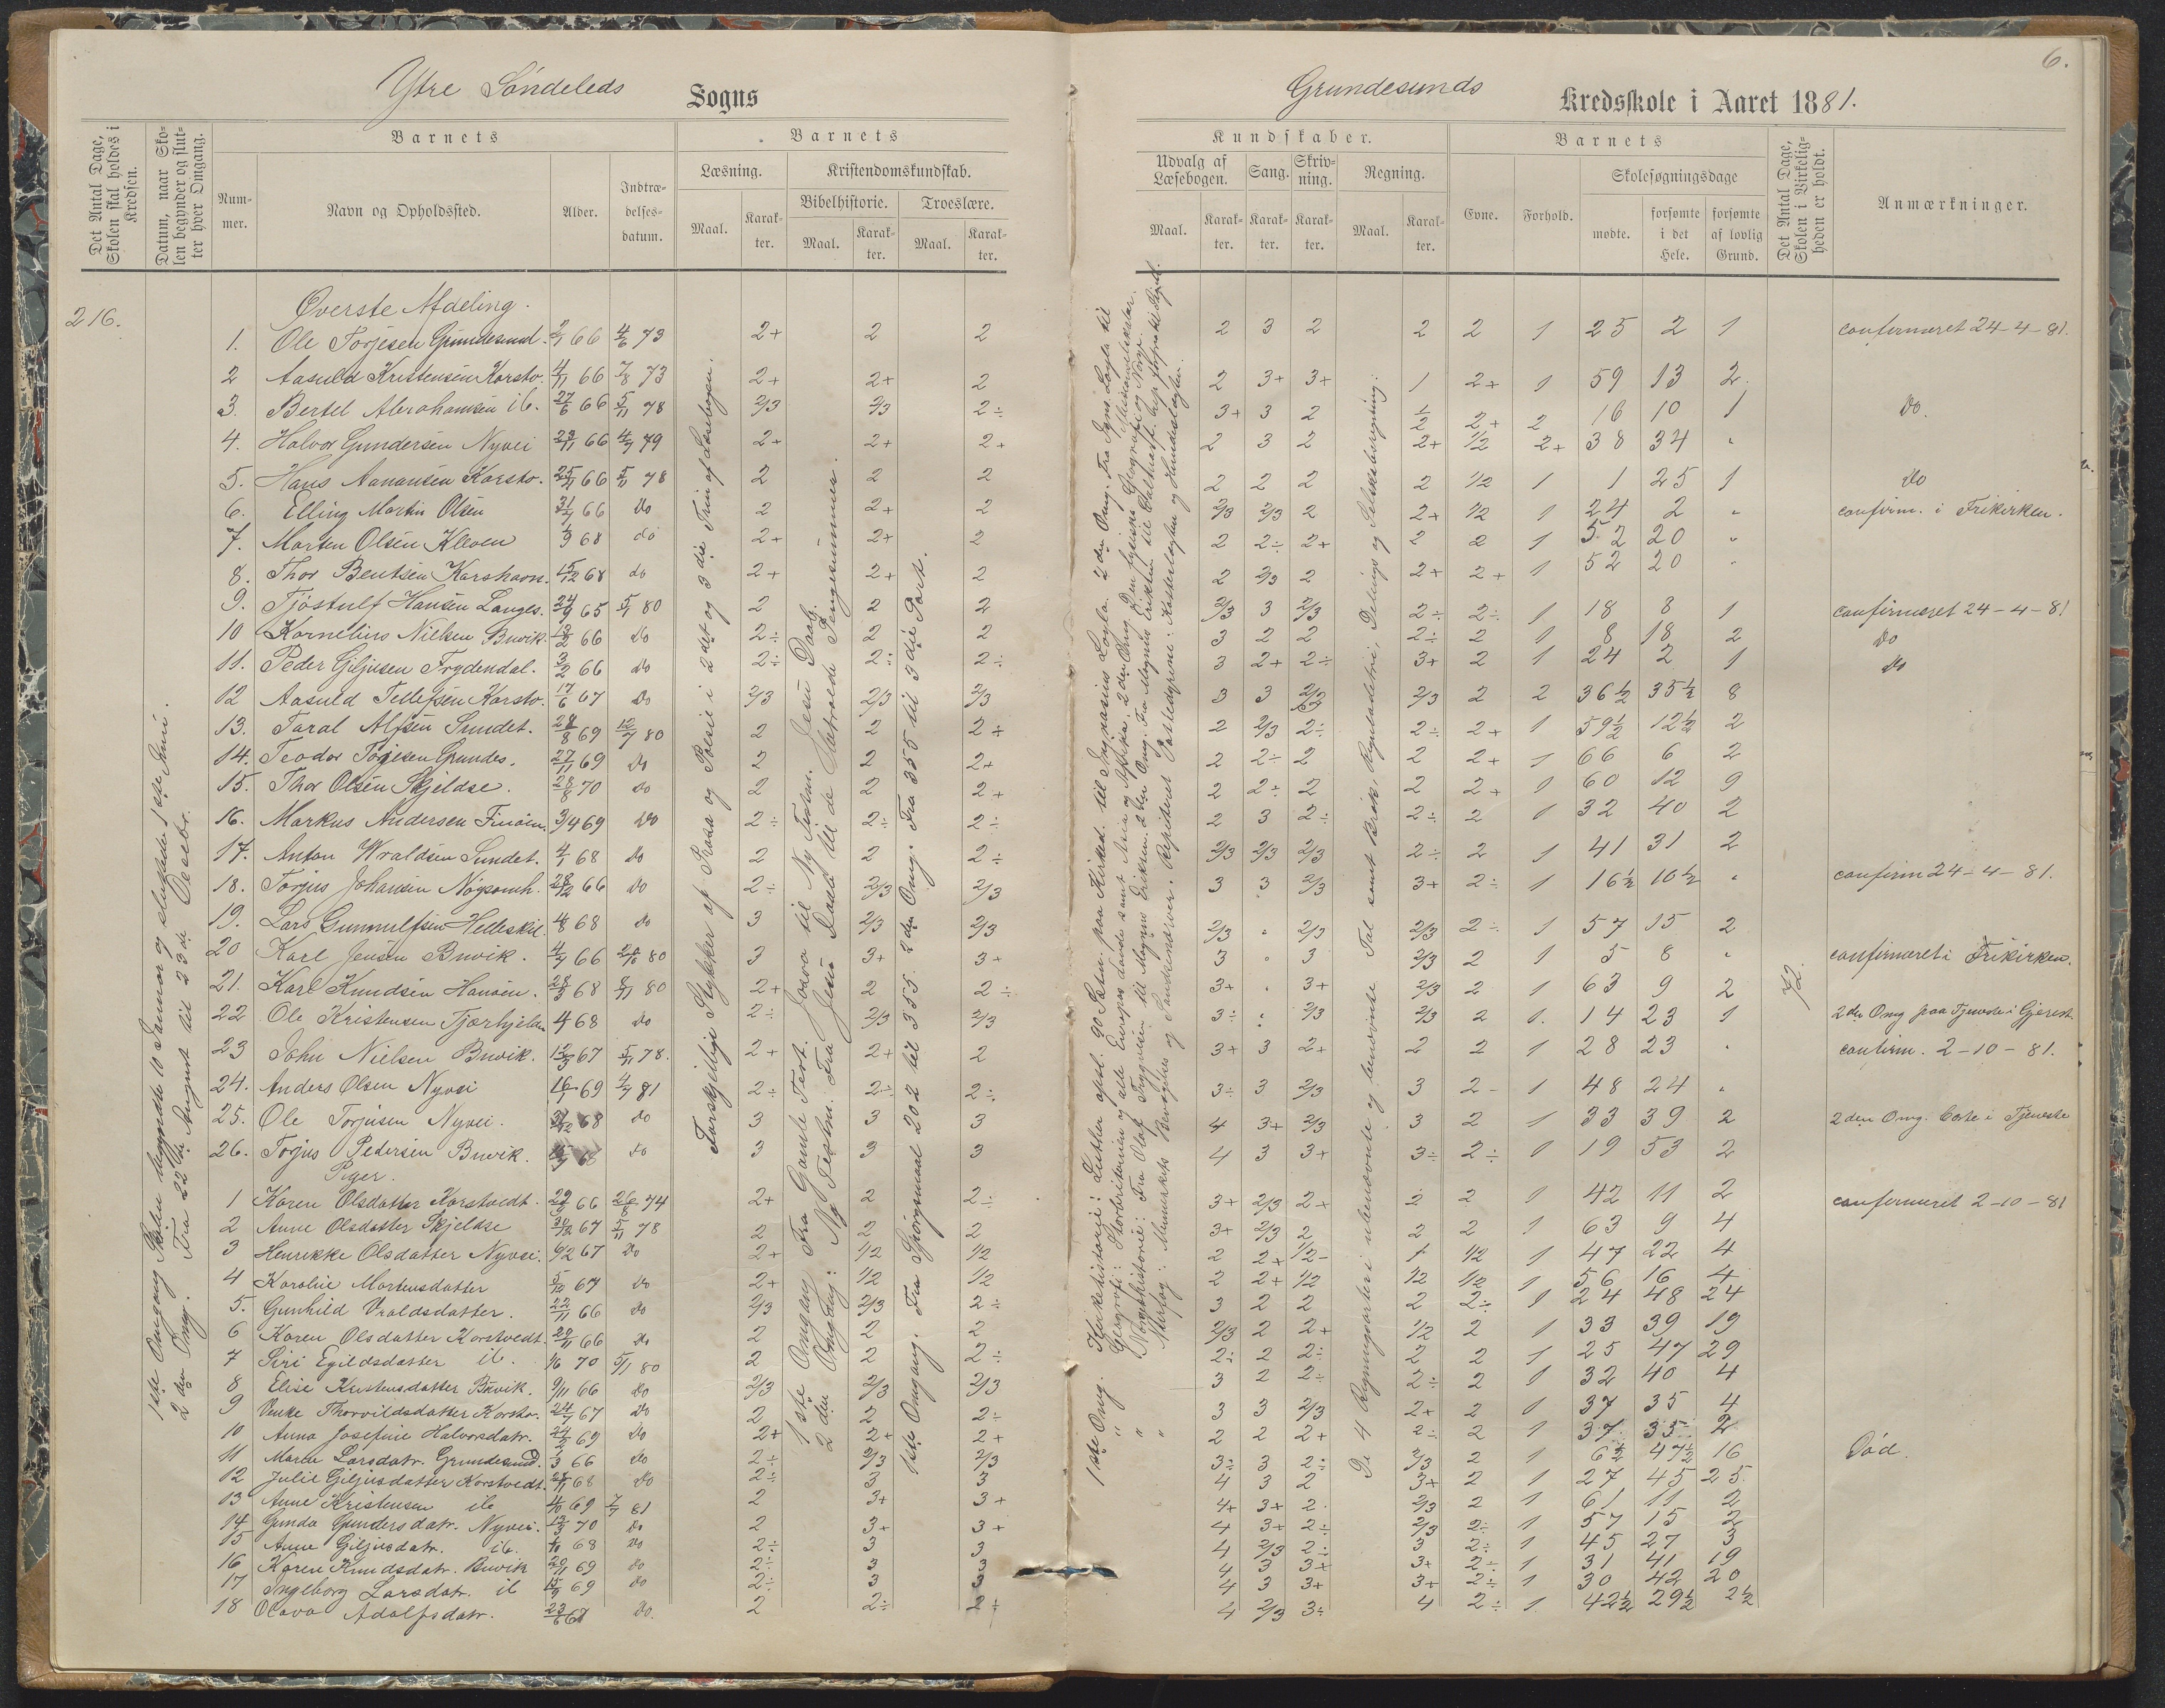 6.
Ytre Söndeleds Sogns
Grundesunds Kredsskole i Aaret 1881.
Det Antal Dage, Skolen skal holdes i Kredsen.
Datum, naar Skolen begynder og slutter hver Omgang.
Barnets
Nummer.
Navn og Opholdssted.
Alder.
Indtrædelsesdatum.
Barnets
Læsning.
Maal.
Karakter.
Kristendomskundskab.
Bibelhistorie.
Maal.
Karakter.
Troeslære.
Maal.
Karakter.
Kundskaber.
Udvalg af Læsebogen.
Maal.
Karakter.
Sang.
Karakter.
Skrivning.
Karakter.
Regning.
Maal.
Karakter.
Barnets
Evne.
Forhold.
Skolesøgningsdage
mødte.
forsømte i det Hele.
forsømte af lovlig Grund.
Det Antal Dage, Skolen i Virkeligheden er holdt.
Anmærkninger.
216.
Överste Afdeling.
1. Ole Torjesen Grundesund. 66 4/6 73 2+ 2 2 2 3 2 2 2 1 25 2 1 confirmeret 24-4-81.
2 Aasuld Kristensen Korstv. 4/11 66 7/8 73 2+ 2+ 2 2 3+ 3+ 1 2+ 1 59 13 2.
3. Bertel Abrahamsen ib. 27/6 66 5/11 78 2/3 2/3 2÷ 3+ 3 2 1/2 2+ 2 16 10 1 Do.
4. Halvor Gundersen Nyvei 66 79 2+ 2+ 2+ 2 3 2 2+ 1/2 2+ 38 34 "
5. Hans Aanonsen Korstv. 66 5/11 78 2 2 2 2 2 2 2 1/2 1 1 25 1 Do
6. Elling Martin Olsen 66 Do 2 2+ 2 2/3 2/3 2 2+ 1/2 1 24 2 " confirm. i Frikirken.
7. Morten Olsen Kleven 68 do 2+ 2+ 2 2 2÷ 2+ 2 2 1 52 20 "
8. Thor Bentsen Karshavn. 15/12 68 do 2+ 2+ 2 2 2/3 2 2+ 2+ 1 52 20 "
9. Tjöstulf Hansen Langes. 24/9 65 80 2 2 2 2/3 3 2/3 2÷ 2÷ 1 18 8 1 confirmeret 24-4-81
10 Kornelius Nielsen Buvik. 66 Do 2÷ 2 2 3 2 2 2÷ 2 1 8 18 2 Do
11. Peder Giljusen Frydendal. 3/2 66 Do 2÷ 2÷ 2÷ 3 2+ 2÷ 3+ 2 1 24 2 1 Do
12 Aasuld Tellefsen Korstv. 17/6 67 Do 2/3 2/3 2/3 3 3 2/3 2/3 2 2 36½ 35½ 8
13. Taral Alfsen Sundet. 28/8 69 12/7 80 2 2 2+ 2 2/3 2÷ 2÷ 2+ 1 59½ 12½ 2
14. Teodor Torjesen Grundes. 27/11 69 Do 2 2 2+ 2 2÷ 2 2 2+ 1 66 6 2
15. Thor Olsen Skjeldse. 70 Do 2 2 2+ 2 2÷ 2 2 2+ 1 60 12 9
16. Markus Andersen Finöien. 3/4 69 Do 2÷ 2÷ 2÷ 2 3 2÷ 2÷ 2 1 32 40 2
17. Anton Wraldsen Sundet. 4/1 68 Do 2 2 2÷ 2/3 2/3 2/3 2÷ 2 1 41 31 2
18. Torjus Johansen Nöysomh. 28/12 66 Do 2÷ 2/3 2/3 3 3 2/3 3+ 2÷ 1 16½ 10½ " confirm 24-4-81.
19. Lars Gunnulfsen Helleskil. 4/8 68 Do 3 2/3 2/3 2/3 " 2/3 2/3 2÷ 1 57 15 2
20 Karl Jensen Buvik. 66 80 3 3+ 3+ 3 " 3 2/3 2 1 5 8 " confirmeret i Frikirken.
21. Karl Knudsen Hanöien. 68 8/11 80 2+ 2 2÷ 3+ " 3+ 2/3 2 1 63 9 2 72.
22 Ole Kristensen Tjærhjelen 68 Do 2÷ 2/3 2/3 3÷ " 2/3 2/3 2 1. 14 23 1 2den Omg paa Tjeneste i Gjerest.
23 John Nielsen Buvik. 67 5/11 78. 2+ 2+ 2 3+ 3 2+ 2 2 1 28 23 " confirm. 2-10-81.
24. Anders Olsen Nyvei 69 4/7 81 2÷ 2÷ 2÷ 3÷ 3 2/3 3 2- 1 48 24 "
25. Ole Torjusen Nyvei. 68 do 3 3 3 4 3+ 2/3 3 2 1 33 39 2 2den Omg. Borte i Tjeneste
26. Torjus Pedersen Buvik. 68 do 3 3 3 4 3 3+ 3÷ 2÷ 1 19 53 2
Piger.
1 Karen Olsdatter Korstvedt. 66 26/8 74 2+ 2 2÷ 3+ 2/3 2+ 2 2 1 42 11 2 confermeret 2-10-81
2 Anne Olsdatter Skjeldse 67 5/11 78 2 2 2 3+ 2/3 2 2 2 1 63 9 4
3 Henrikke Olsdatter Nyvei. 9/12 67 Do 2+ 1/2 1/2 2 2+ 1/2- 1 1/2 1 47 22 4
4 Karolie Mortensdatter 67 Do 2+ 1/2 1/2 2 2+ 1/2 1/2 1/2 1 56 16 4
5. Gunhild Vraldsdatter. 22/11 66 Do 2/3 2/3 2÷ 3 2 2 2 2÷ 1 24 48 24
6 Karen Olsdatter Korstvedt. 66 Do 2 2 2 2/3 2 2+ 1/2 2 1 33 39 19
7 Siri Egildsdatter ib. 70 5/11 80 2 2 2÷ 2÷ 2 2÷ 2 2 1 25 47 29
8 Elise Kristensdatter Buvik. 9/11 66 Do 2/3 2/3 2/3 3 2 2÷ 2÷ 2 1 32 40 4
9 Venke Thorvildsdatter Korstv. 67 Do 2 2 2÷ 3 3 2/3 2+ 2 1 37 35 4
10 Anna Josefine Halvorsdatr. 69 Do 2+ 2+ 2+ 2 2 2+ 2÷ 2 1 37. 35. 2
11 Maren Larsdatr. Grundesund. 66 do 2÷ 2/3 2/3 3÷ 3 2÷ 2/3 2 1 6½ 47½ 16 Död.
12 Julie Giljusdatter Korstvedt. 68 Do 2÷ 3 3 4 3 2 3+ 2 1 27 45 25.
13 Anne Kristensen ib 69 7/7 81 2 3+ 3+ 4+ 3+ 2. 2/3 2 1 61 11 2
14 Gunda Gundersdatr. Nyvei. 70 Do 2 3+ 3+ 4 3+ 2÷ 2/3 2÷ 1 57 15 2
15 Anne Giljusdatr. ib. 68 Do 2÷ 3 3 4 2/3 2÷ 3 2÷ 1 45 27 3
16 Karen Knudsdatr. Buvik 69 do 2÷ 3 3 4 3 3+ 3+ 2÷ 1 31 41 19
17 Ingeborg Larsdatr. ib 69 do 2÷ 3 3 4 3 3+ 3+ 2÷ 1 30 42 20
18 Olava Adolfsdatr. 67 Do. 2 2÷ 2+ 4 2/3 3÷ 4 2÷ 1 42½ 29½ 2½
1ste Omgang Skolen begyndte 10 Januar og sluttede 1ste Juni.
2den Omg. Fra 22de August til 23de Decebr.
Forskjellige Stykker af Prosa og Poesie i 2det og 3die Trin af Læsebogen.
1ste Omgang Fra Gamle Test. Josva til Ny Testm. Jesu Daab.
2den Omgang: Ny Testm. Fra Jesu Daab til de betroede Pengesummer.
1ste Omgang. Fra Spörgsmaal 202 til 355. 2den Omg. Fra 355 til 3die Part.
1ste Omg. Kirkehistorie: Luther opst. 90 Sætn. paa Kirked. til Ignasius Loyla. 2den Omg. Fra Igns. Loyla til Missionselskaber.
" Geografi: Storbritanien og alle Europas Lande samt Asia og Afrika. 2den Omg. Den fysiske Geografi og Norge.
" Norgeshistorie: Fra Olaf Trygveson til Magnus Eriksen. 2den Omg. Fra Magnus Eriksen til
De 4 Regningsarter i ubenævnte og benævnte Tal samt Brök, Reguladetri, Delings og Selskabsregning.